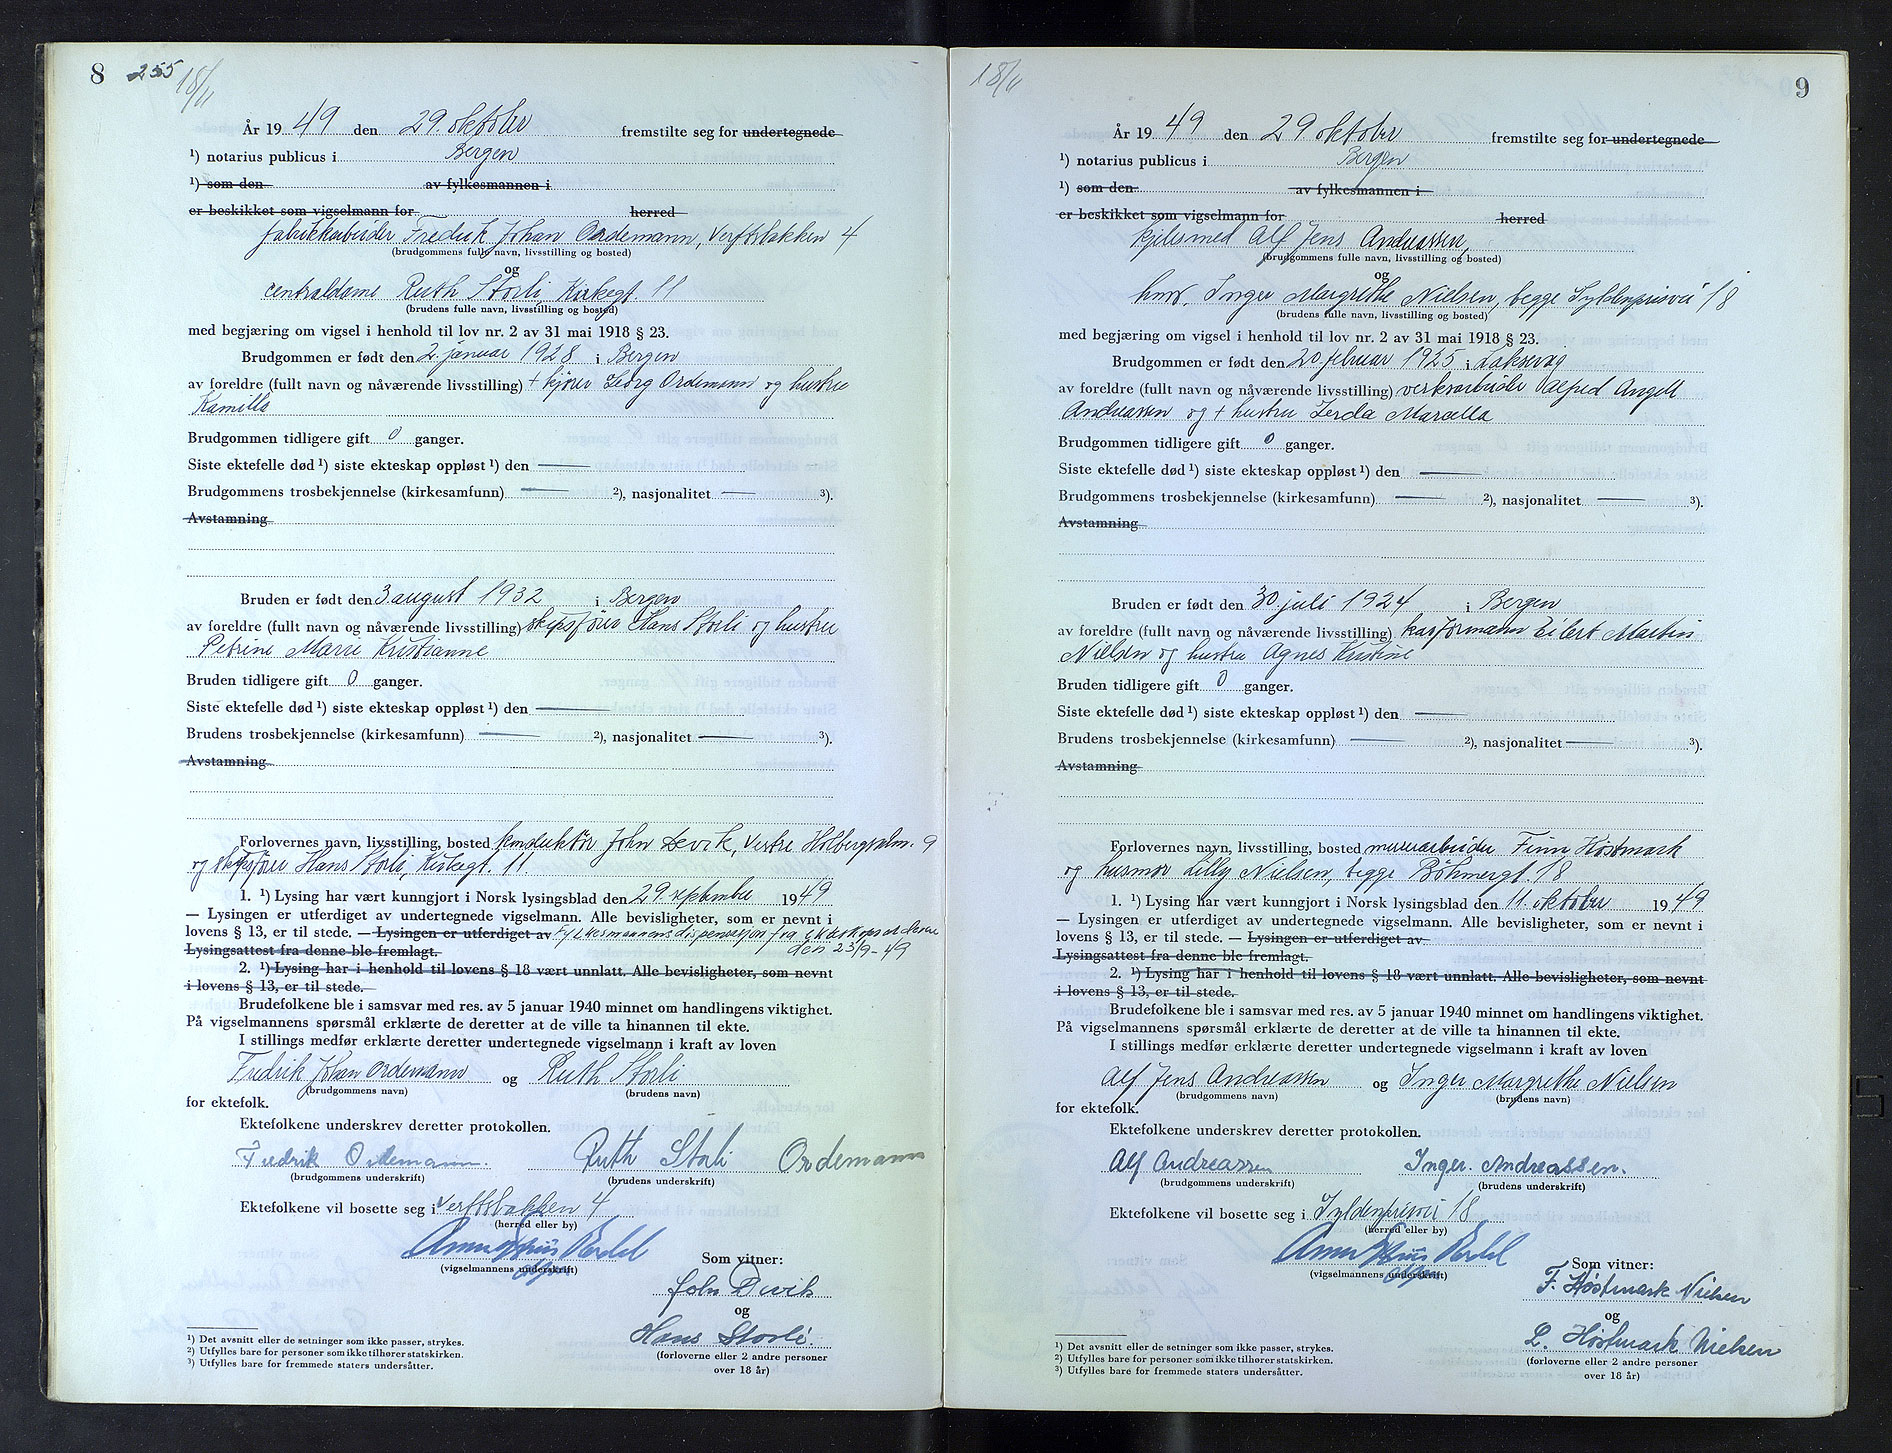 8 255 18/11
År 19 49 den 29. oktober fremstilte seg for undertegnede
¹) notarius publicus i Bergen
¹) som den av fylkesmannen i
er beskikket som vigselmann for herred
fabrikkarbeider Fredrik Johan Ordemann, Verftsbakken 4
(brudgommens fulle navn, livsstilling og bosted)
og
centraldame Ruth Storli, Kirkegt. 11
(brudens fulle navn, livsstilling og bosted)
med begjæring om vigsel i henhold til lov nr. 2 av 31 mai 1918 § 23.
Brudgommen er født den 2. januar 1928 i Bergen
av foreldre (fullt navn og nåværende livsstilling) + kjører Georg Ordemann og hustru
Kamilla
Brudgommen tidligere gift 0 ganger.
Siste ektefelle død ¹) siste ekteskap oppløst ¹) den —
Brudgommens trosbekjennelse (kirkesamfunn) — ²), nasjonalitet — ³).
Avstamning
Bruden er født den 3 august 1932 i Bergen
av foreldre (fullt navn og nåværende livsstilling) skipsfører Hans Storli og hustru
Petrine Marie Kristianne
Bruden tidligere gift 0 ganger.
Siste ektefelle død ¹) siste ekteskap oppløst ¹) den —
Brudens trosbekjennelse (kirkesamfunn) — ²), nasjonalitet — ³).
Avstamning
Forlovernes navn, livsstilling, bosted konduktør John Devik, Vestre Holbergsalm. 9
og skipsfører Hans Storli, Kirkegt. 11
1. ¹) Lysing har vært kunngjort i Norsk lysingsblad den 29. september 1949
— Lysingen er utferdiget av undertegnede vigselmann. Alle bevisligheter, som er nevnt i
lovens § 13, er til stede. — Lysingen er utferdiget av Fylkesmannens dispensasjon fra ekteskapsalderen
Lysingsattest fra denne ble fremlagt. den 23/9-49
2. ¹) Lysing har i henhold til lovens § 18 vært unnlatt. Alle bevisligheter, som nevnt
i lovens § 13, er til stede.
Brudefolkene ble i samsvar med res. av 5 januar 1940 minnet om handlingens viktighet.
På vigselmannens spørsmål erklærte de deretter at de ville ta hinannen til ekte.
I stillings medfør erklærte deretter undertegnede vigselmann i kraft av loven
Fredrik Johan Ordemann og Ruth Storli
(brudgommens navn) (brudens navn)
for ektefolk.
Ektefolkene underskrev deretter protokollen.
Fredrik Ordemann. Ruth Storli Ordemann
(brudgommens underskrift) (brudens underskrift)
Ektefolkene vil bosette seg i Verftsbakken 4
(herred eller by)
(vigselmannens underskrift)
Som vitner:
John Devik
og
Hans Storli.
(forloverne eller 2 andre personer
over 18 år)
¹) Det avsnitt eller de setninger som ikke passer, strykes.
²) Utfylles bare for personer som ikke tilhører statskirken.
³) Utfylles bare for fremmede staters undersåtter.
18/11 9
År 19 49 den 29 oktober fremstilte seg for undertegnede
¹) notarius publicus i Bergen
¹) som den av fylkesmannen i
er beskikket som vigselmann for herred
kjelesmed Alf Jens Andreassen,
(brudgommens fulle navn, livsstilling og bosted)
og
hmv. Inger Margrethe Nielsen, begge Gyldenprisvei 18
(brudens fulle navn, livsstilling og bosted)
med begjæring om vigsel i henhold til lov nr. 2 av 31 mai 1918 § 23.
Brudgommen er født den 20 februar 1925 i Laksevåg
av foreldre (fullt navn og nåværende livsstilling) verksarbeider Valfred Angell
Andreassen og + hustru Gerda Marcella
Brudgommen tidligere gift 0 ganger.
Siste ektefelle død ¹) siste ekteskap oppløst ¹) den —
Brudgommens trosbekjennelse (kirkesamfunn) — ²), nasjonalitet — ³).
Avstamning
Bruden er født den 30. juli 1924 i Bergen
av foreldre (fullt navn og nåværende livsstilling) kaiformann Eilert Martin
Nielsen og hustru Agnes Kristine
Bruden tidligere gift 0 ganger.
Siste ektefelle død ¹) siste ekteskap oppløst ¹) den —
Brudens trosbekjennelse (kirkesamfunn) — ²), nasjonalitet — ³).
Avstamning
Forlovernes navn, livsstilling, bosted murerarbeider Finn Høstmark
og husmor Lilly Nielsen, begge Bøhmergt. 18
1. ¹) Lysing har vært kunngjort i Norsk lysingsblad den 11. oktober 1949
— Lysingen er utferdiget av undertegnede vigselmann. Alle bevisligheter, som er nevnt i
lovens § 13, er til stede. — Lysingen er utferdiget av
Lysingsattest fra denne ble fremlagt.
2. ¹) Lysing har i henhold til lovens § 18 vært unnlatt. Alle bevisligheter, som nevnt
i lovens § 13, er til stede.
Brudefolkene ble i samsvar med res. av 5 januar 1940 minnet om handlingens viktighet.
På vigselmannens spørsmål erklærte de deretter at de ville ta hinannen til ekte.
I stillings medfør erklærte deretter undertegnede vigselmann i kraft av loven
Alf Jens Andreassen og Inger Margrethe Nielsen
(brudgommens navn) (brudens navn)
for ektefolk.
Ektefolkene underskrev deretter protokollen.
Alf Andreassen Inger. Andreassen.
(brudgommens underskrift) (brudens underskrift)
Ektefolkene vil bosette seg i Gyldenprisvei 18
(herred eller by)
(vigselmannens underskrift)
Som vitner:
F. Høstmark Nielsen
og
L. Høstmark Nielsen
(forloverne eller 2 andre personer
over 18 år)
¹) Det avsnitt eller de setninger som ikke passer, strykes.
²) Utfylles bare for personer som ikke tilhører statskirken.
³) Utfylles bare for fremmede staters undersåtter.